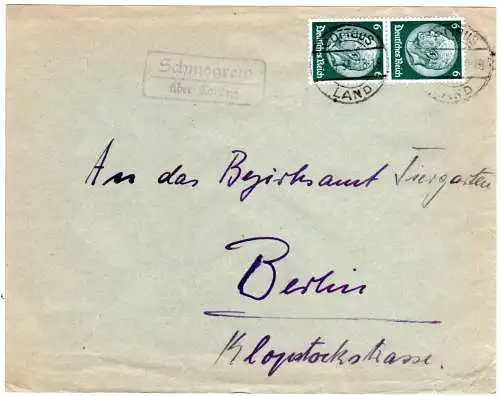 Schmogrow
über Cottbus
COTTBUS
LAND
Deutsches Reich
6
Deutsches Reich
6
LAND
An das Bezirksamt Tiergarten
Berlin
Klopstockstrasse.